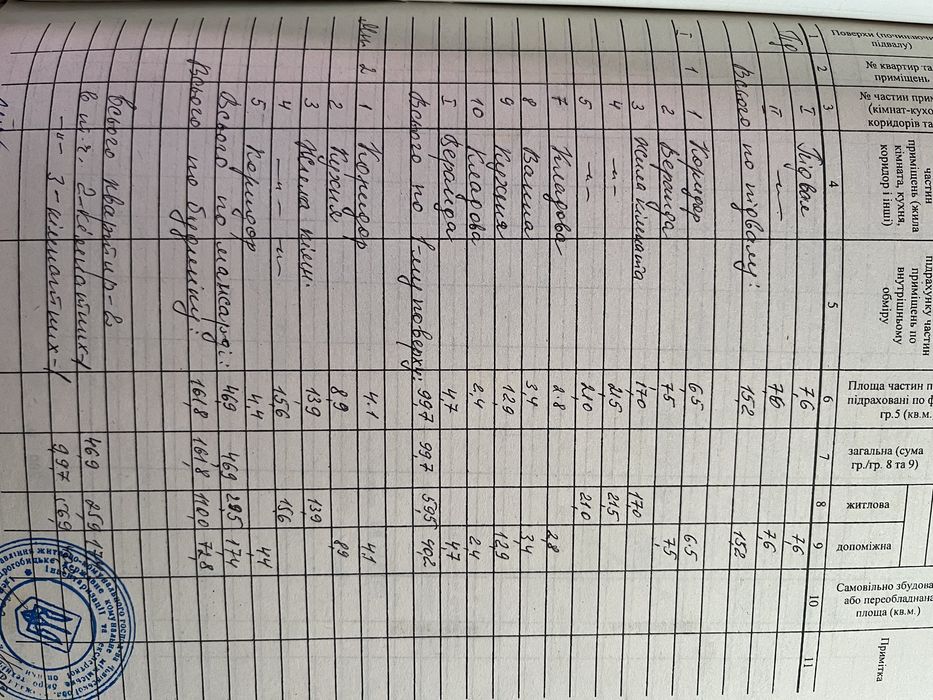 Поверхи (починаючи підвалу)
№ квартир та приміщень
№ частин прим (кімнат-кухо коридорів та
частин приміщень (жила кімната, кухня, коридор і інші)
підрахунку частин приміщень по внутрішньому обміру
Площа частин п підраховані по ф гр.5 (кв.м.
загальна (сума гр./гр. 8 та 9)
житлова
допоміжна
Самовільно збудова або переобладнана площа (кв.м.)
Примітка
1 2 3 4 5 6 7 8 9 10 11
І Підвал 7,6 7,6
ІІ —"— 7,6 7,6
Всього по підвалу: 15,2 15,2
І 1 1 Коридор 6,5 6,5
2 Веранда 7,5 7,5
3 Жила кімната 17,0 17,0
4 —"— 21,5 21,5
5 —"— 21,0 21,0
7 Кладова 2,8 2,8
8 Ванна 3,4 3,4
9 Кухня 12,9 12,9
10 Кладова 2,4 2,4
І Веранда 4,7 4,7
Всього по 1-му поверху: 99,7 99,7 59,5 40,2
Ман 2 1 Коридор 4,1 4,1
2 Кухня 8,9 8,9
3 Жила кімн. 13,9 13,9
4 —"— —"— 15,6 15,6
5 Коридор 4,4 4,4
Всього по мансарді: 46,9 46,9 29,5 17,4
Всього по будинку: 161,8 161,8 110,0 71,8
Всього квартир-2
в т.ч. 2-кімнатних-1 46,9
—"— 3-кімнатних-1